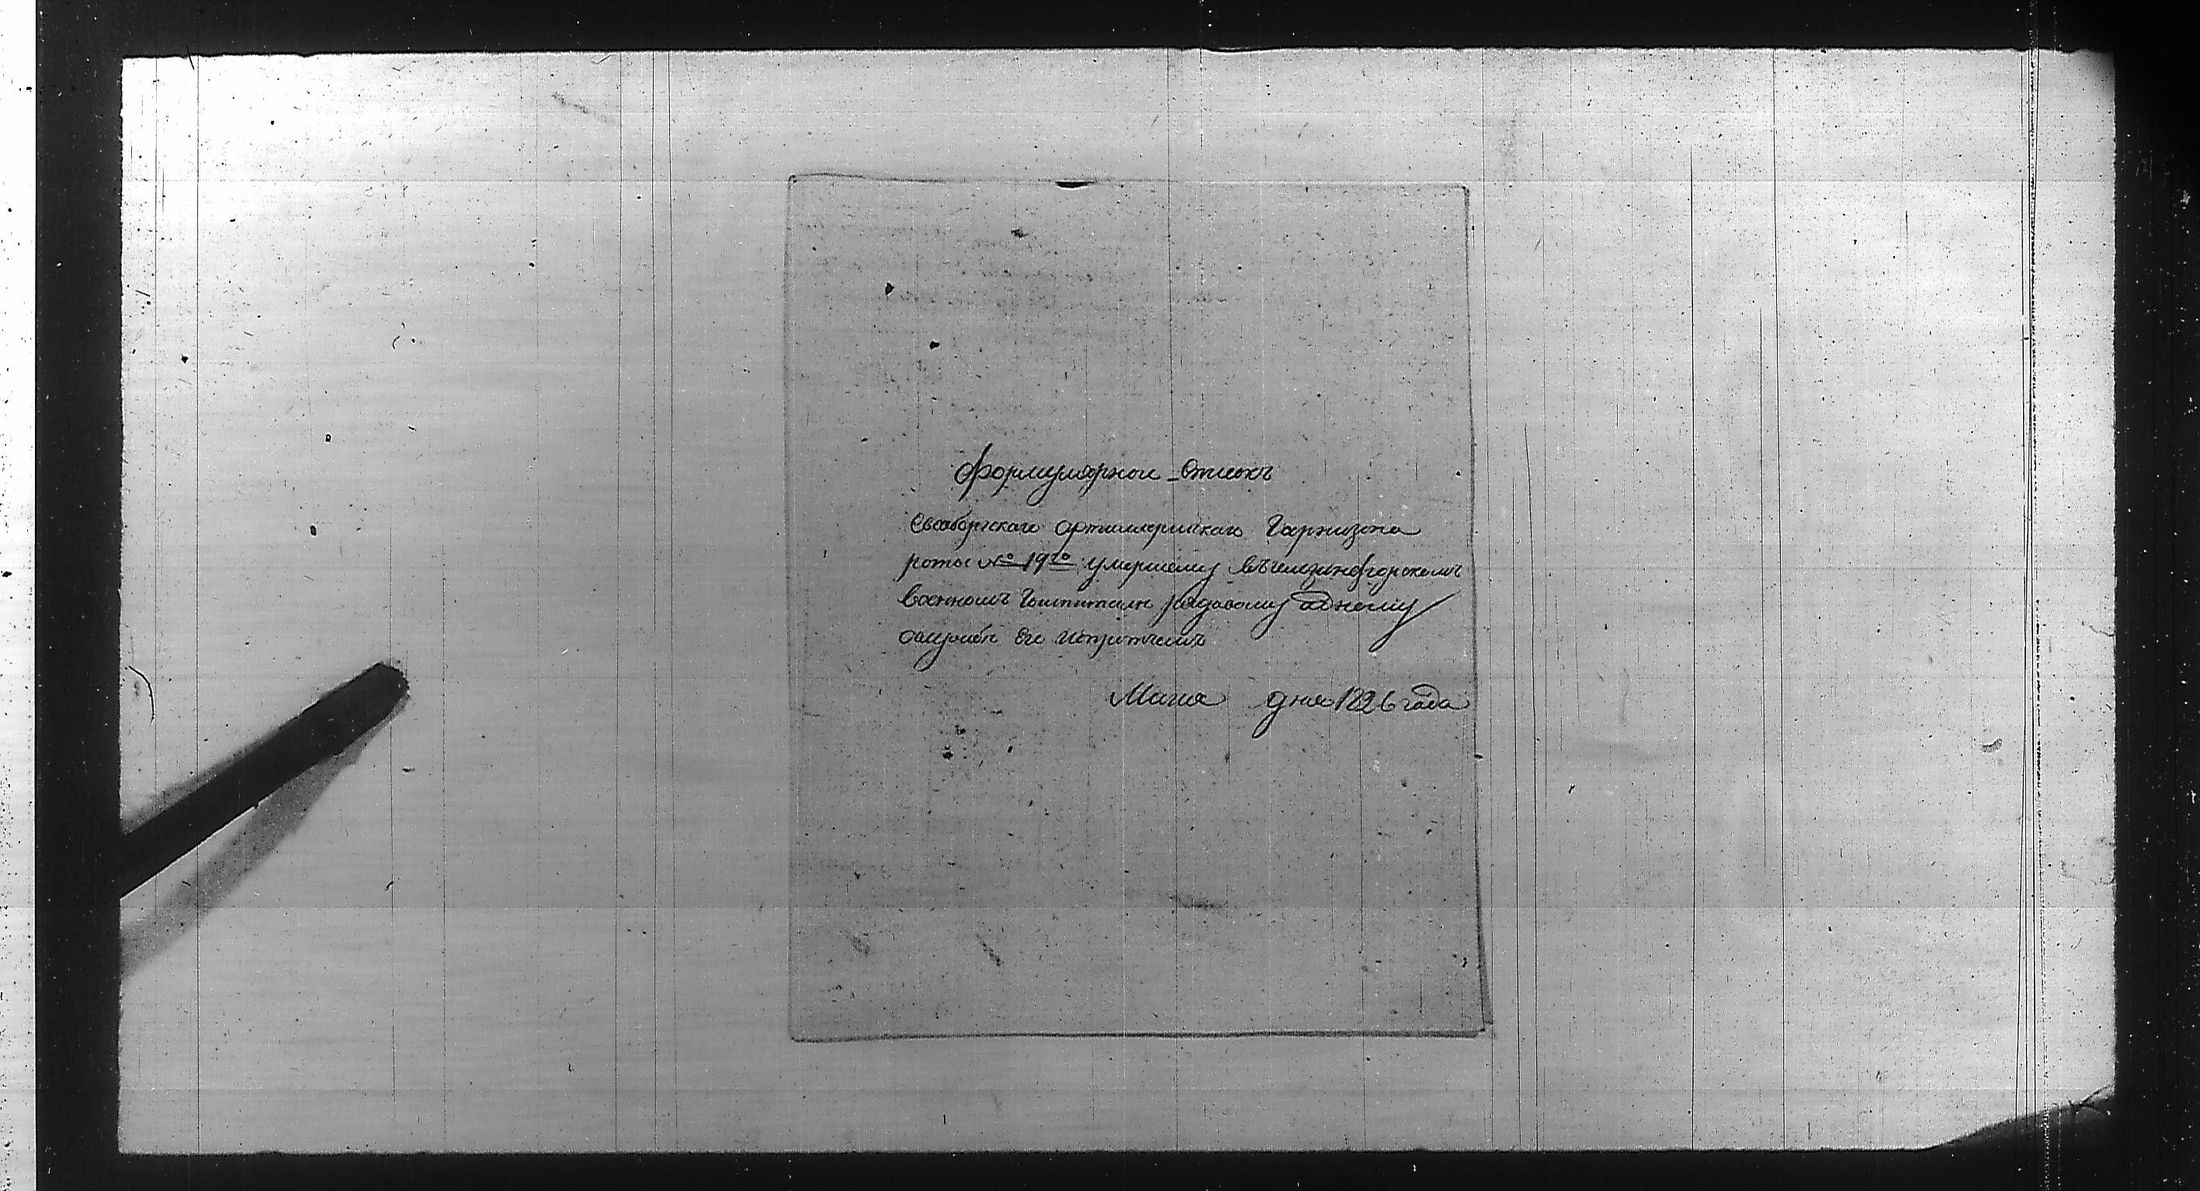 Формулярной Список
Свеаборгскаго Артиллерийскаго Гарнизона
роты № 19го умершему въ Гелзинфгорскомъ
военномъ Гошпитале рядовому адному
ослужбе Его ипротчемъ
Маия дня 1826 года